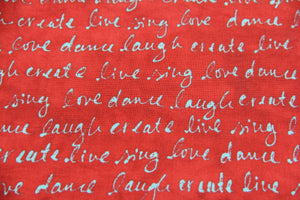 create live sing love dance
love dance laugh create live
laugh create live sing love dance
sing love dance laugh create
dance laugh create live sing
create live sing love dance
love dance laugh create live